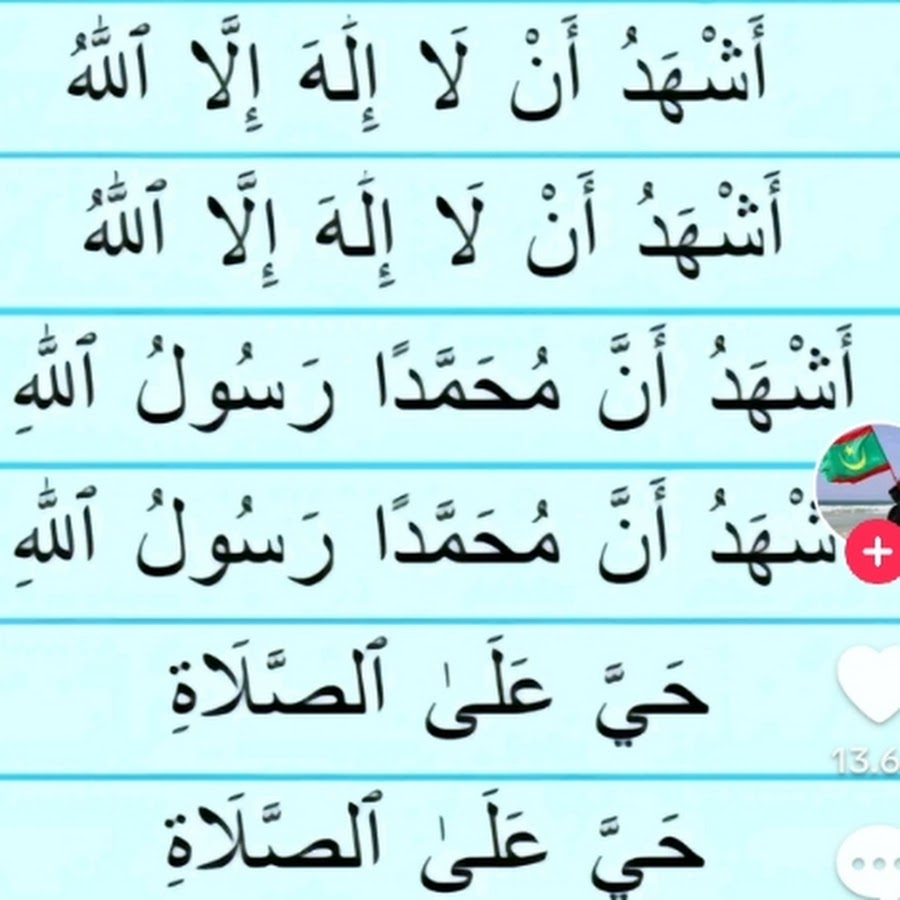 أَشْهَدُ أَنْ لَا إِلَٰهَ إِلَّا ٱللَّٰهُ
أَشْهَدُ أَنْ لَا إِلَٰهَ إِلَّا ٱللَّٰهُ
أَشْهَدُ أَنَّ مُحَمَّدًا رَسُولُ ٱللَّٰهِ
شْهَدُ أَنَّ مُحَمَّدًا رَسُولُ ٱللَّٰهِ
حَيَّ عَلَىٰ ٱلصَّلَاةِ
13.6
حَيَّ عَلَىٰ ٱلصَّلَاةِ